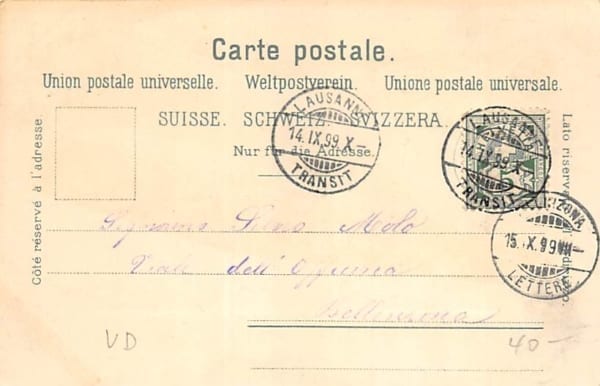 Carte postale.
Union postale universelle. Weltpostverein. Unione postale universale.
SUISSE. SCHWEIZ. SVIZZERA.
Nur für die Adresse.
Côté réservé à l'adresse
Lato riserva
LAUSANNE
14.IX.99.X-
TRANSIT
LAUSANNE
14.IX.99.X-
TRANSIT
15.IX.99
LETTERE
Melo
Viale dell'
Bellinzona
VD
40-